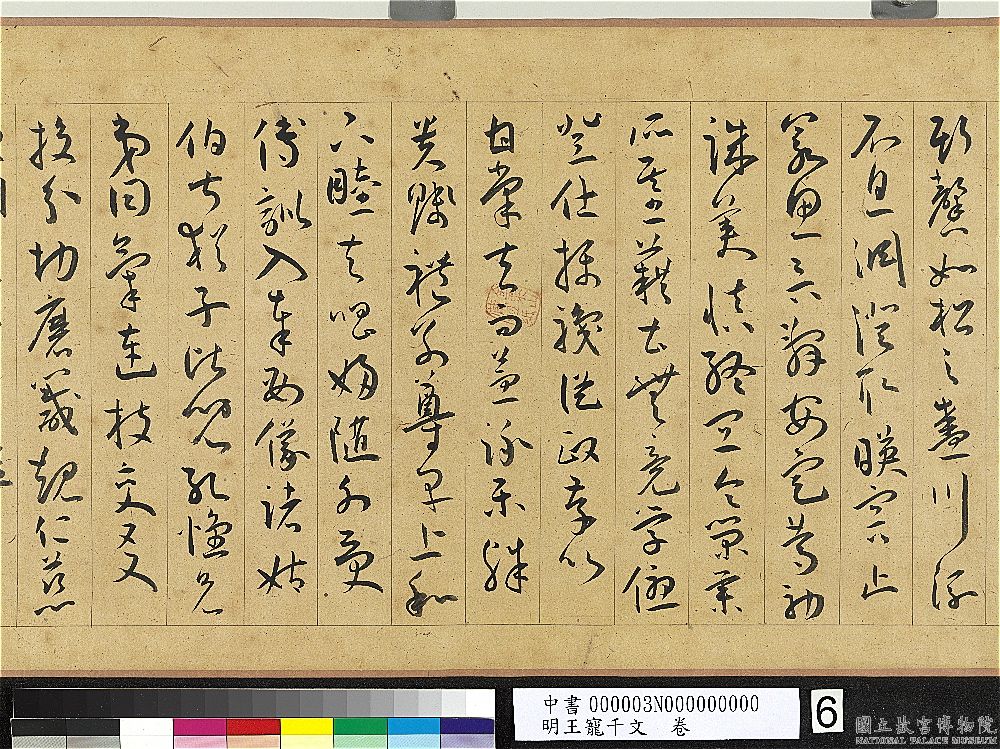 斯馨如松之盛川流
不息淵澄取暎容止
若思言辭安定篤初
誠美慎終宜令榮業
所基藉甚無竟學優
登仕攝職從政存以
甘棠去而益詠樂殊
貴賤禮別尊卑上和
下睦夫唱婦隨外受
傅訓入奉母儀諸姑
伯叔猶子比兒孔懷兄
弟同氣連枝交友
投分切磨箴規仁慈
中書 000003N000000000
明王寵千文 卷
6
國立故宮博物院
NATIONAL PALACE MUSEUM